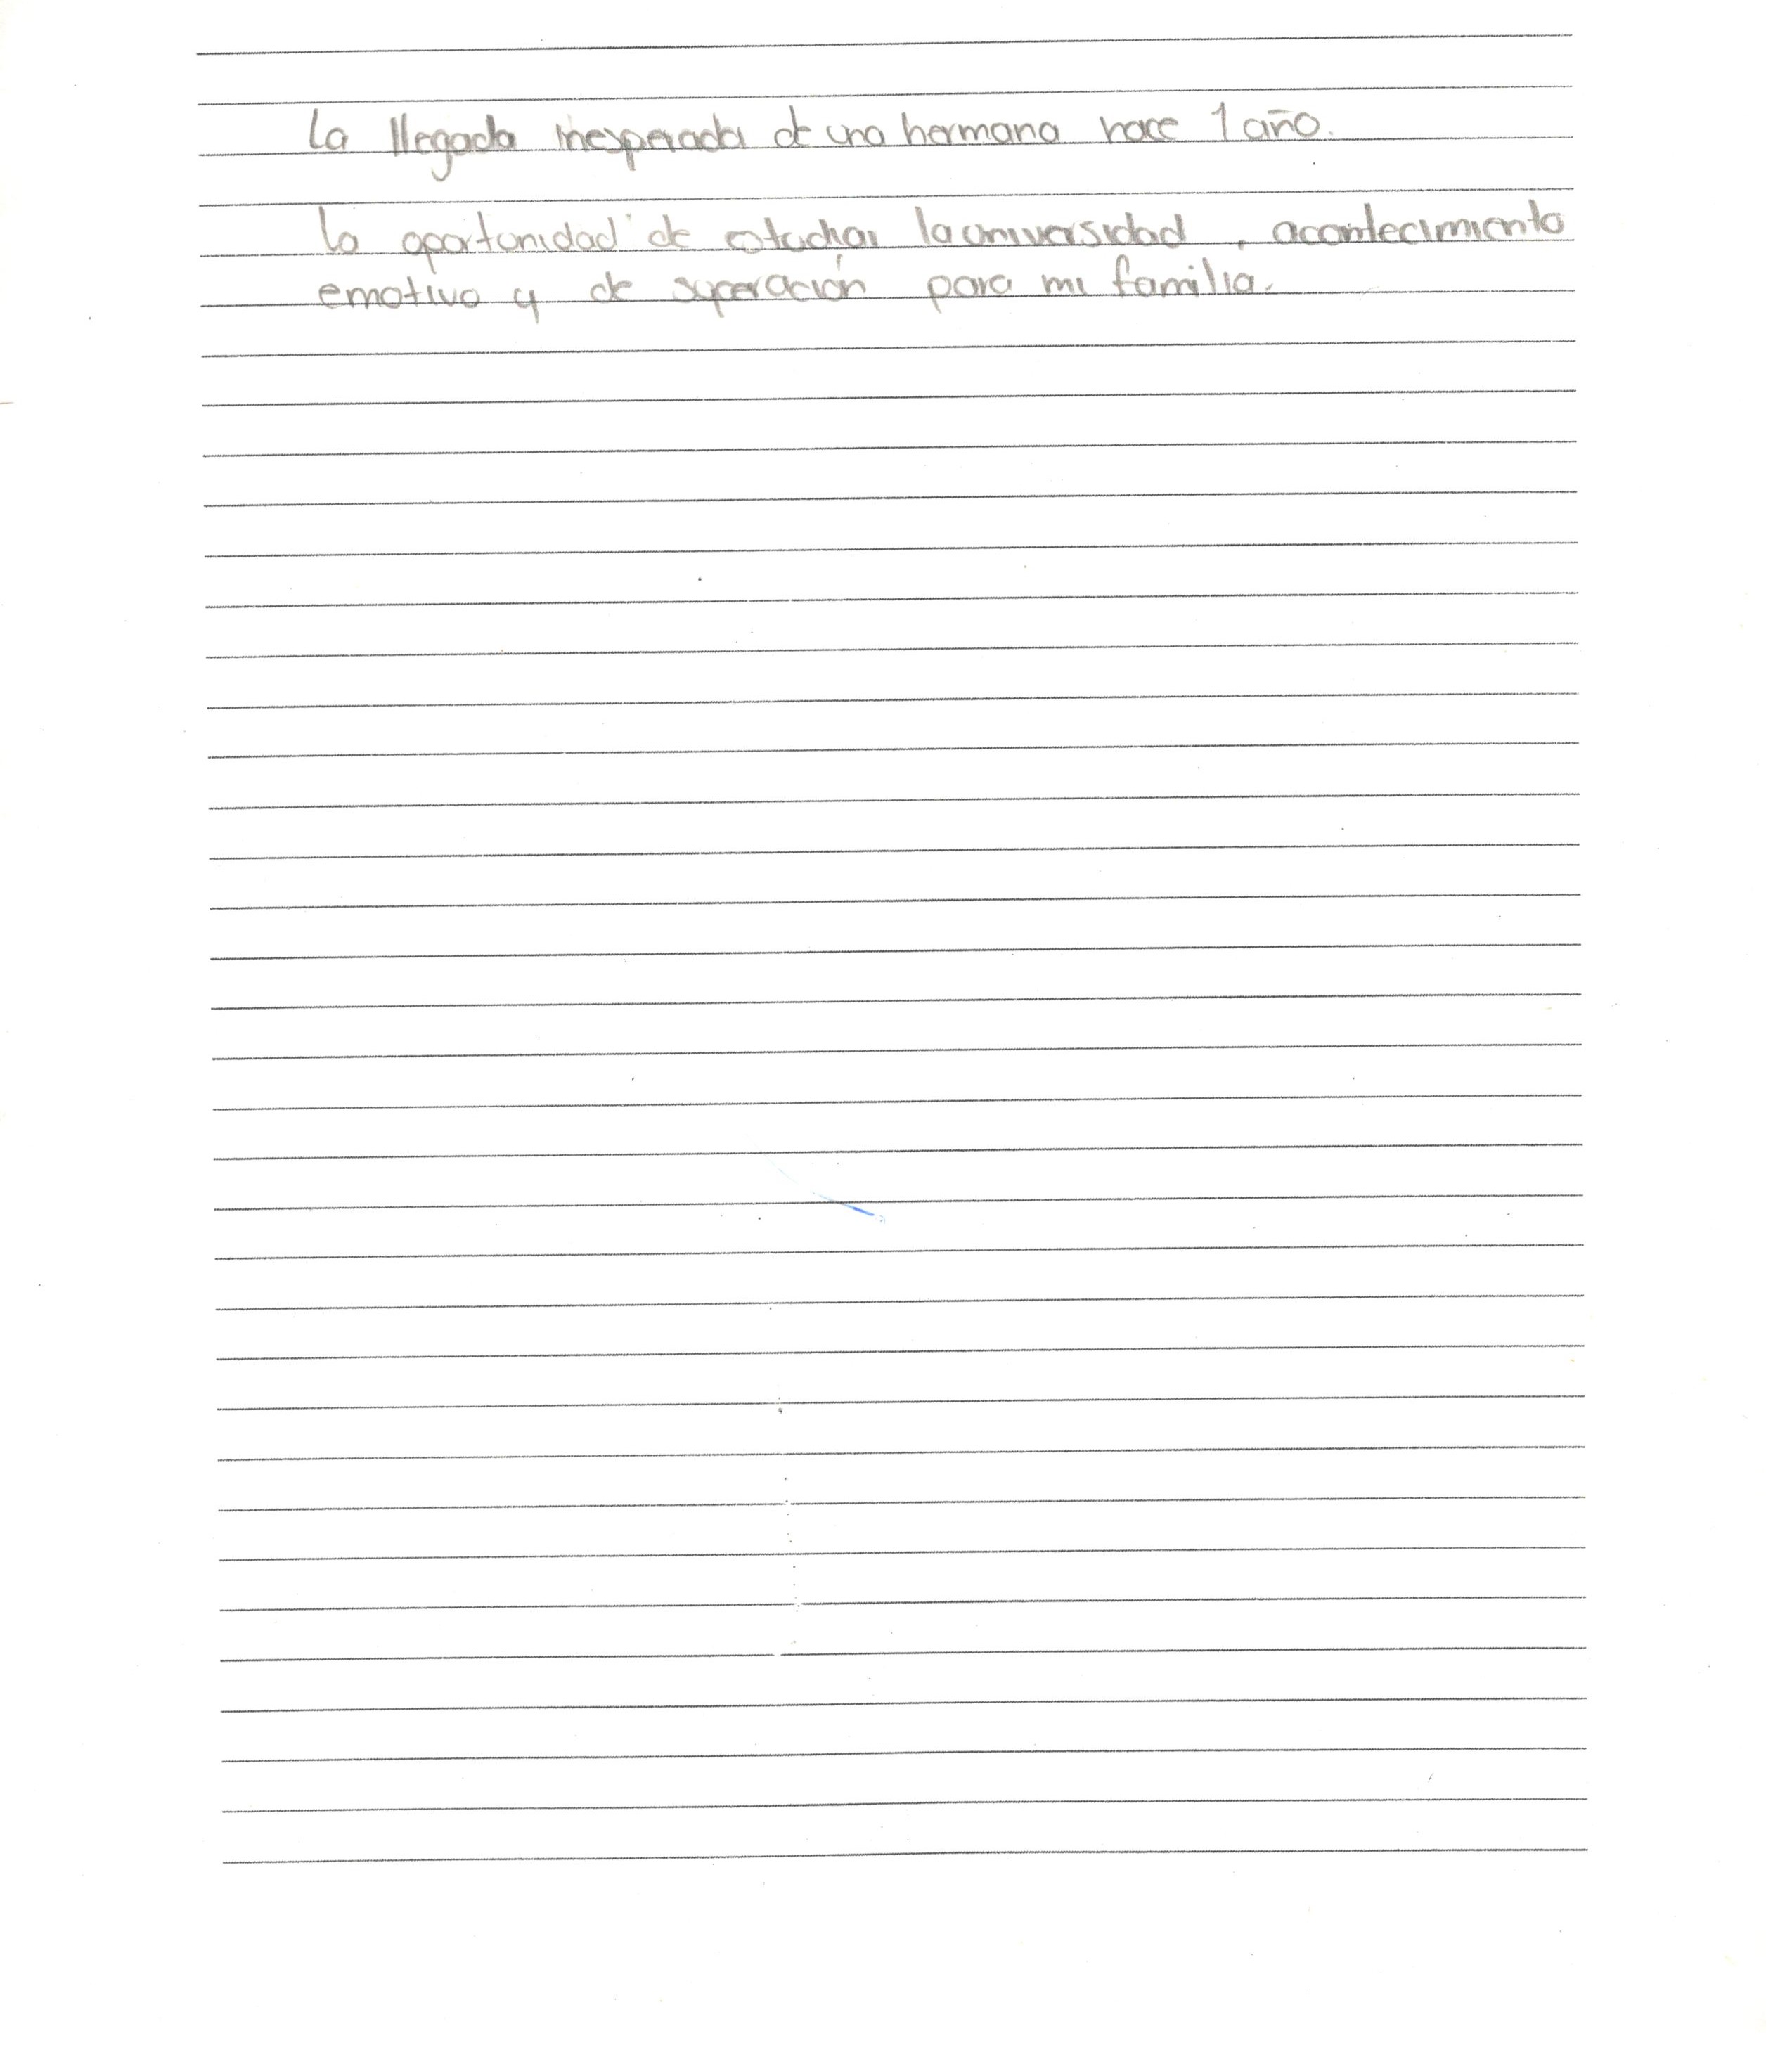 La llegada inesperada de una hermana hace 1 año.
La oportunidad de estudiar la universidad, acontecimiento
emotivo y de superación para mi familia.